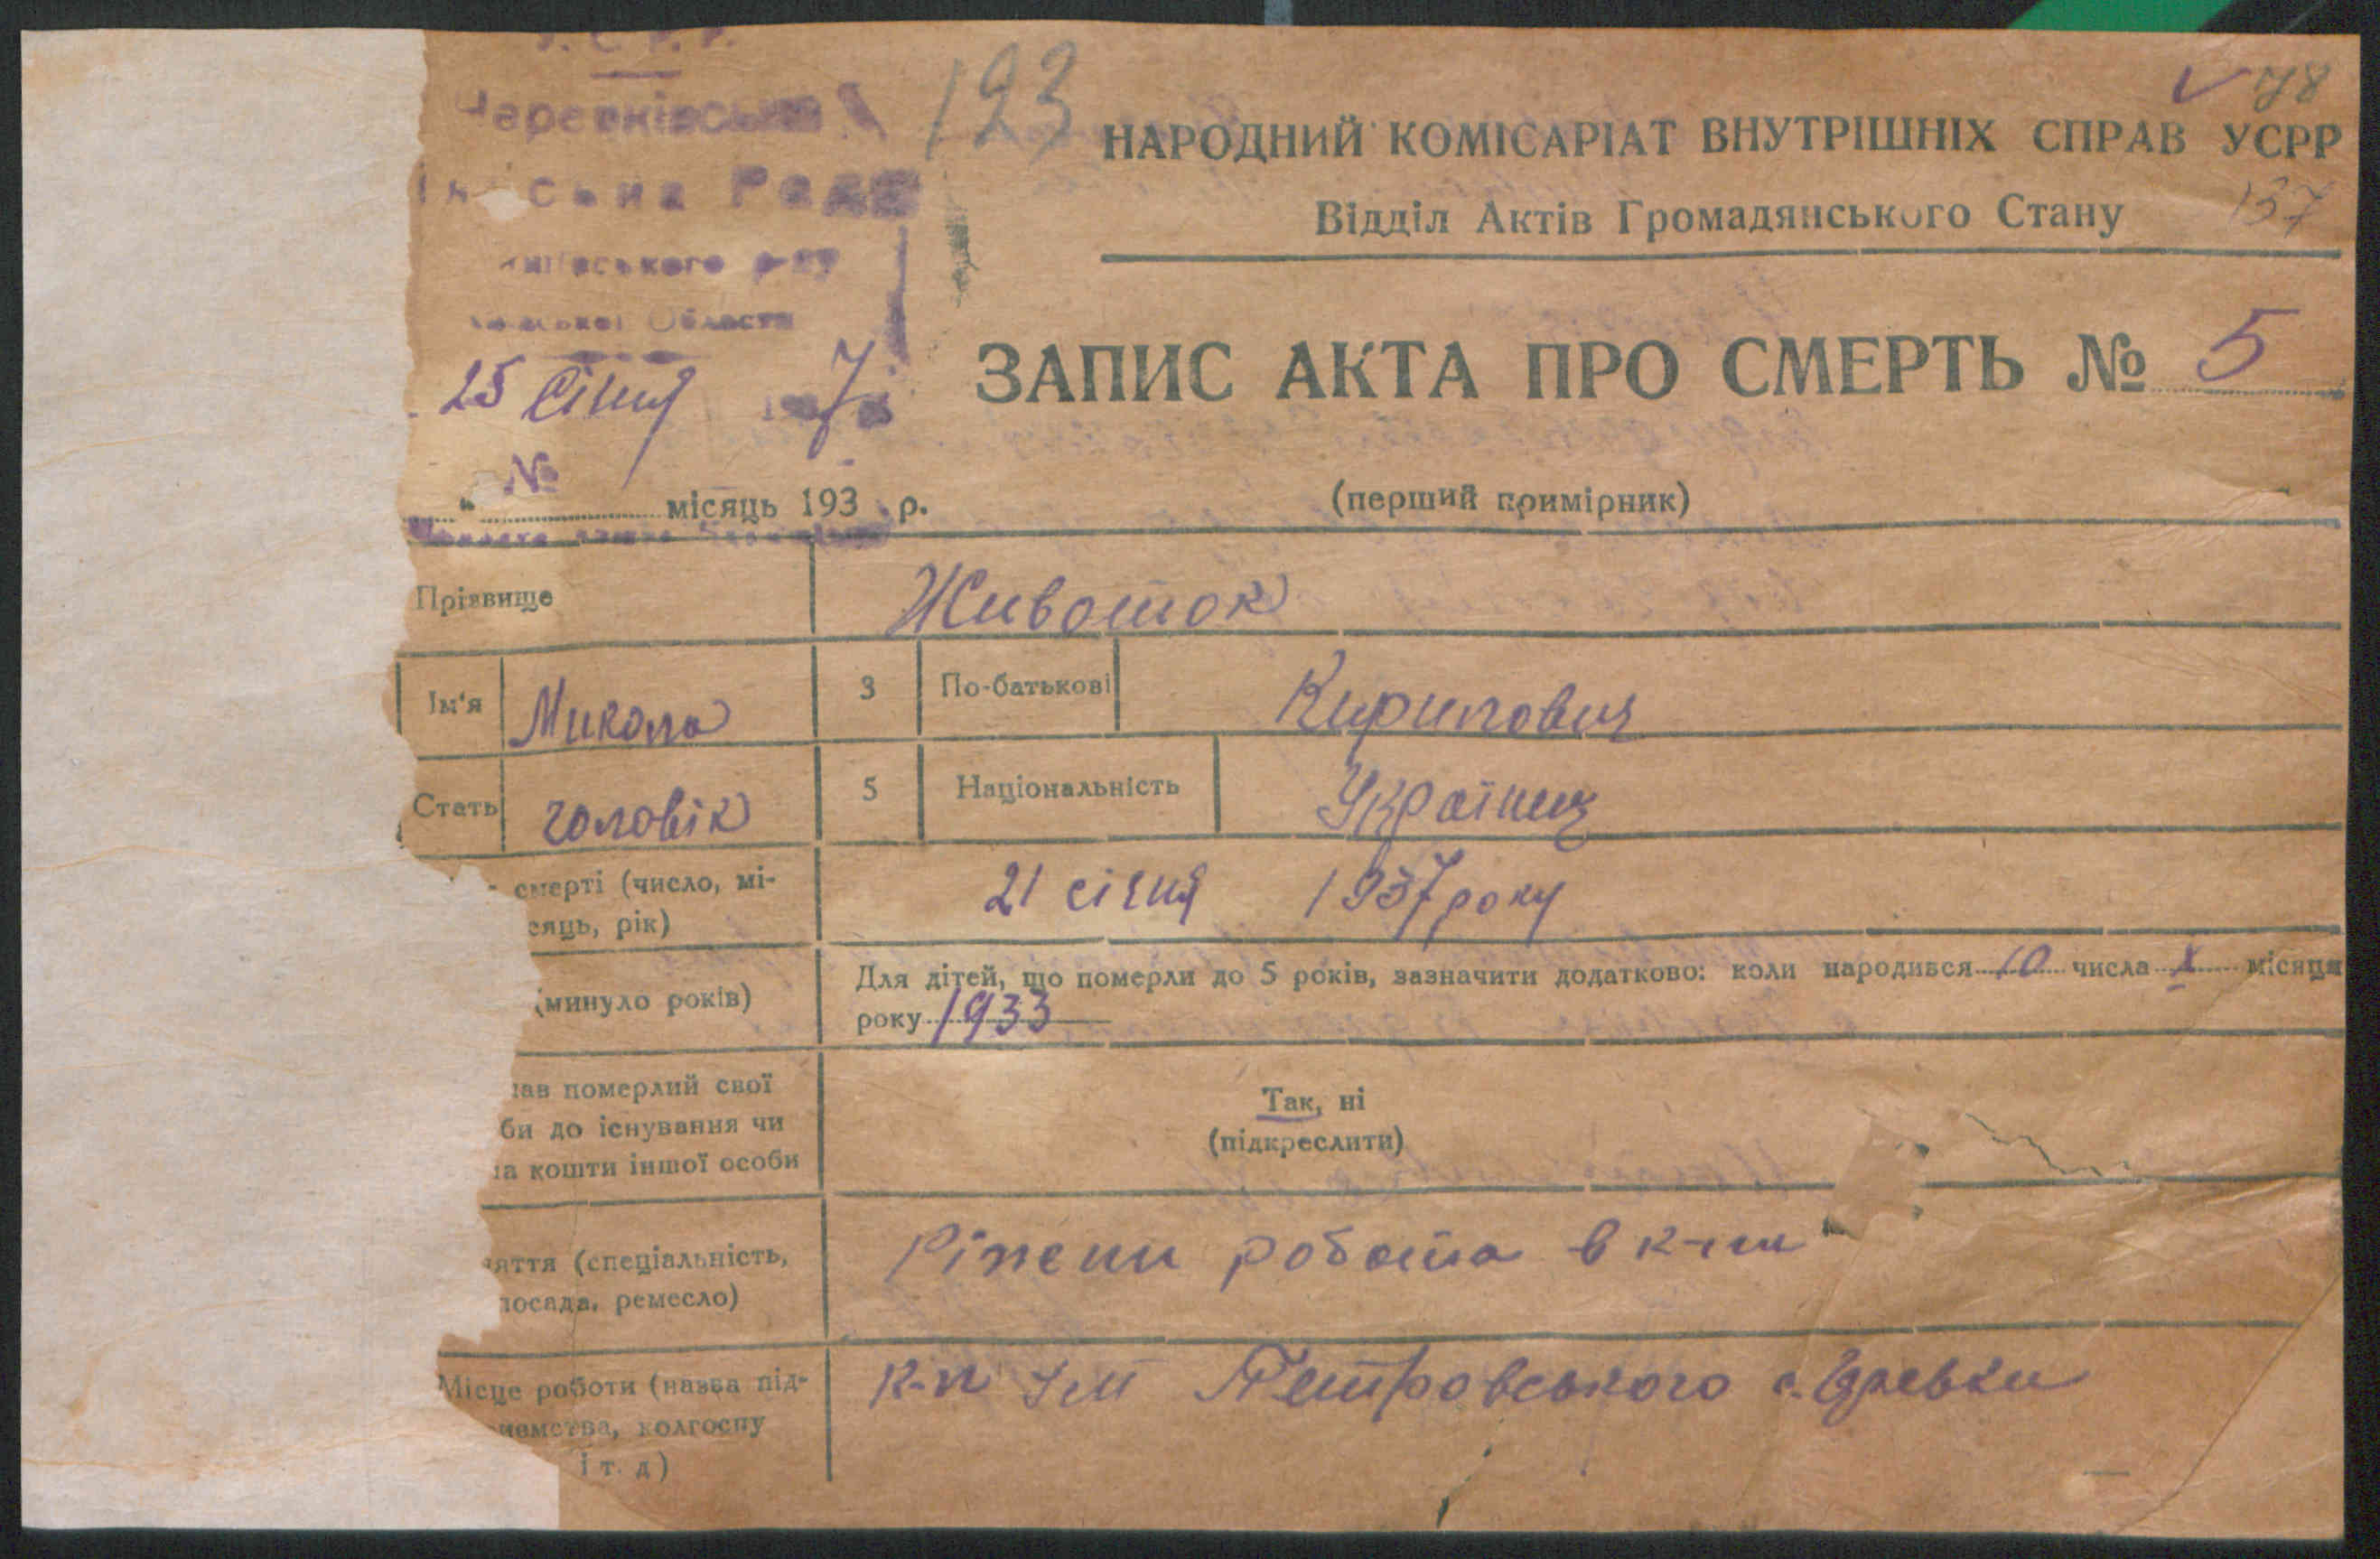 У.С.Р.Р.
Рада
Області
25 січня 1937
№
123
78
НАРОДНИЙ КОМІСАРІАТ ВНУТРІШНІХ СПРАВ УСРР
Відділ Актів Громадянського Стану
137
ЗАПИС АКТА ПРО СМЕРТЬ № 5
" місяць 193 р.
(перший примірник)
Прізвище Животок
Ім'я Микола 3 По-батькові Кирилович
Стать чоловік 5 Національність Українец
смерті (число, мі-
сяць, рік)
21 січня 1937 року
(минуло років)
Для дітей, що померли до 5 років, зазначити додатково: коли народився 10 числа X місяця
року 1933
мав померлий свої
би до існування чи
на кошти іншої особи
Так, ні
(підкреслити)
няття (спеціальність,
посада, ремесло)
робота в
Місце роботи (назва під-
иємства, колгоспу
і т. д)
к-п Ім Петровського с.